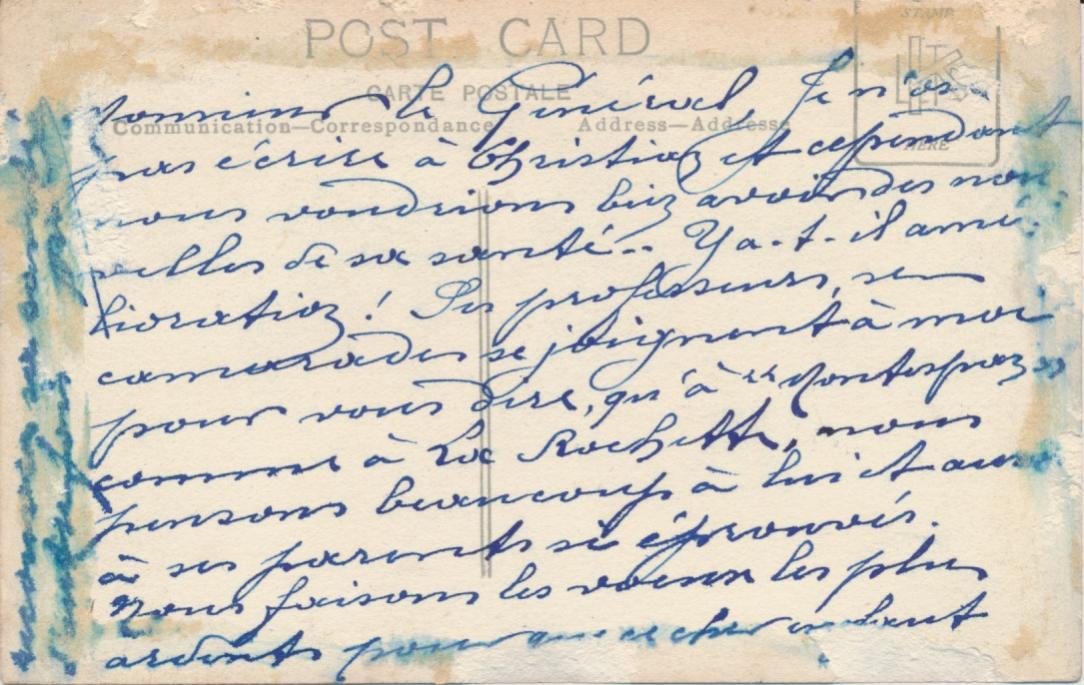 POST CARD
CARTE POSTALE
Communication—Correspondance
Address—Addresse
STAMP
HERE
Monsieur le Général, Je n'ose
pas écrire à Christian et cependant
nous voudrions bien avoir des nou-
velles de sa santé.. Y a-t-il amé-
lioration! Ses professeurs, ses
camarades se joignent à moi
pour vous dire, qu'à "Montespan"
comme à La Rochette, nous
pensons beaucoup à lui et aussi
à ses parents si éprouvés.
Nous faisons les vœux les plus
ardents pour que ce cher enfant